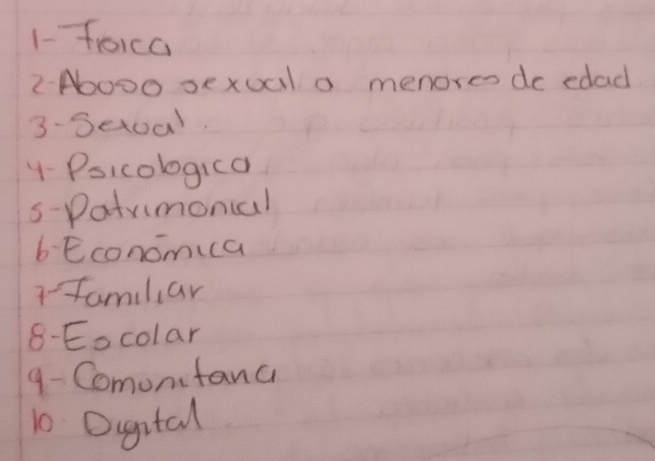 1- Física
2- Abuso sexual a menores de edad
3- Sexual.
4- Psicologica
5- Patrimonial
6- Económica
7- Familiar
8- Escolar
9- Comunitaria
10- Digital